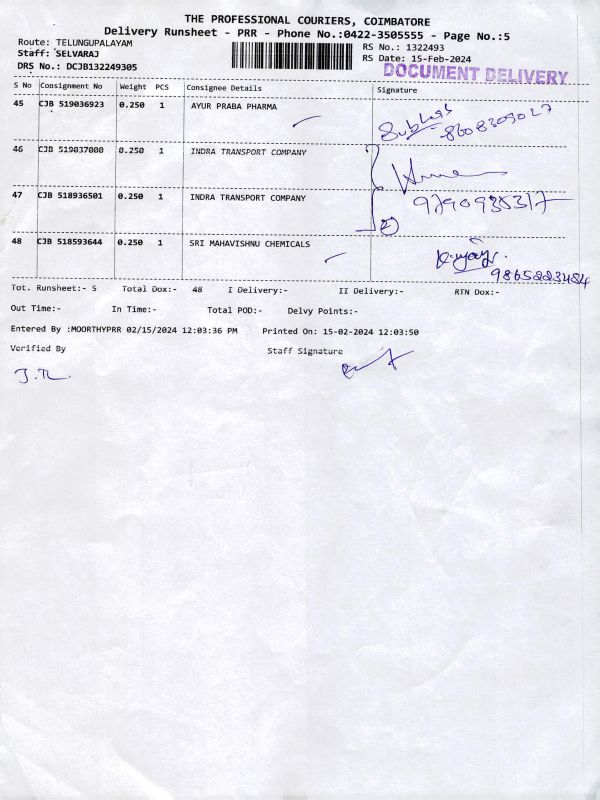 THE PROFESSIONAL COURIERS, COIMBATORE
Delivery Runsheet - PRR - Phone No.:0422-3505555 - Page No.:5
Route: TELUNGUPALAYAM
Staff: SELVARAJ
DRS No.: DCJB132249305
RS No.: 1322493
RS Date: 15-Feb-2024
DOCUMENT DELIVERY
S No Consignment No Weight PCS Consignee Details Signature
45 CJB 519036923 0.250 1 AYUR PRABA PHARMA
8608309027
46 CJB 519037000 0.250 1 INDRA TRANSPORT COMPANY
47 CJB 518936501 0.250 1 INDRA TRANSPORT COMPANY
2
48 CJB 518593644 0.250 1 SRI MAHAVISHNU CHEMICALS
Tot. Runsheet:- 5 Total Dox:- 48 I Delivery:- II Delivery:- RTN Dox:-
Out Time:- In Time:- Total POD:- Delvy Points:-
Entered By :MOORTHYPRR 02/15/2024 12:03:36 PM Printed On: 15-02-2024 12:03:50
Verified By Staff Signature